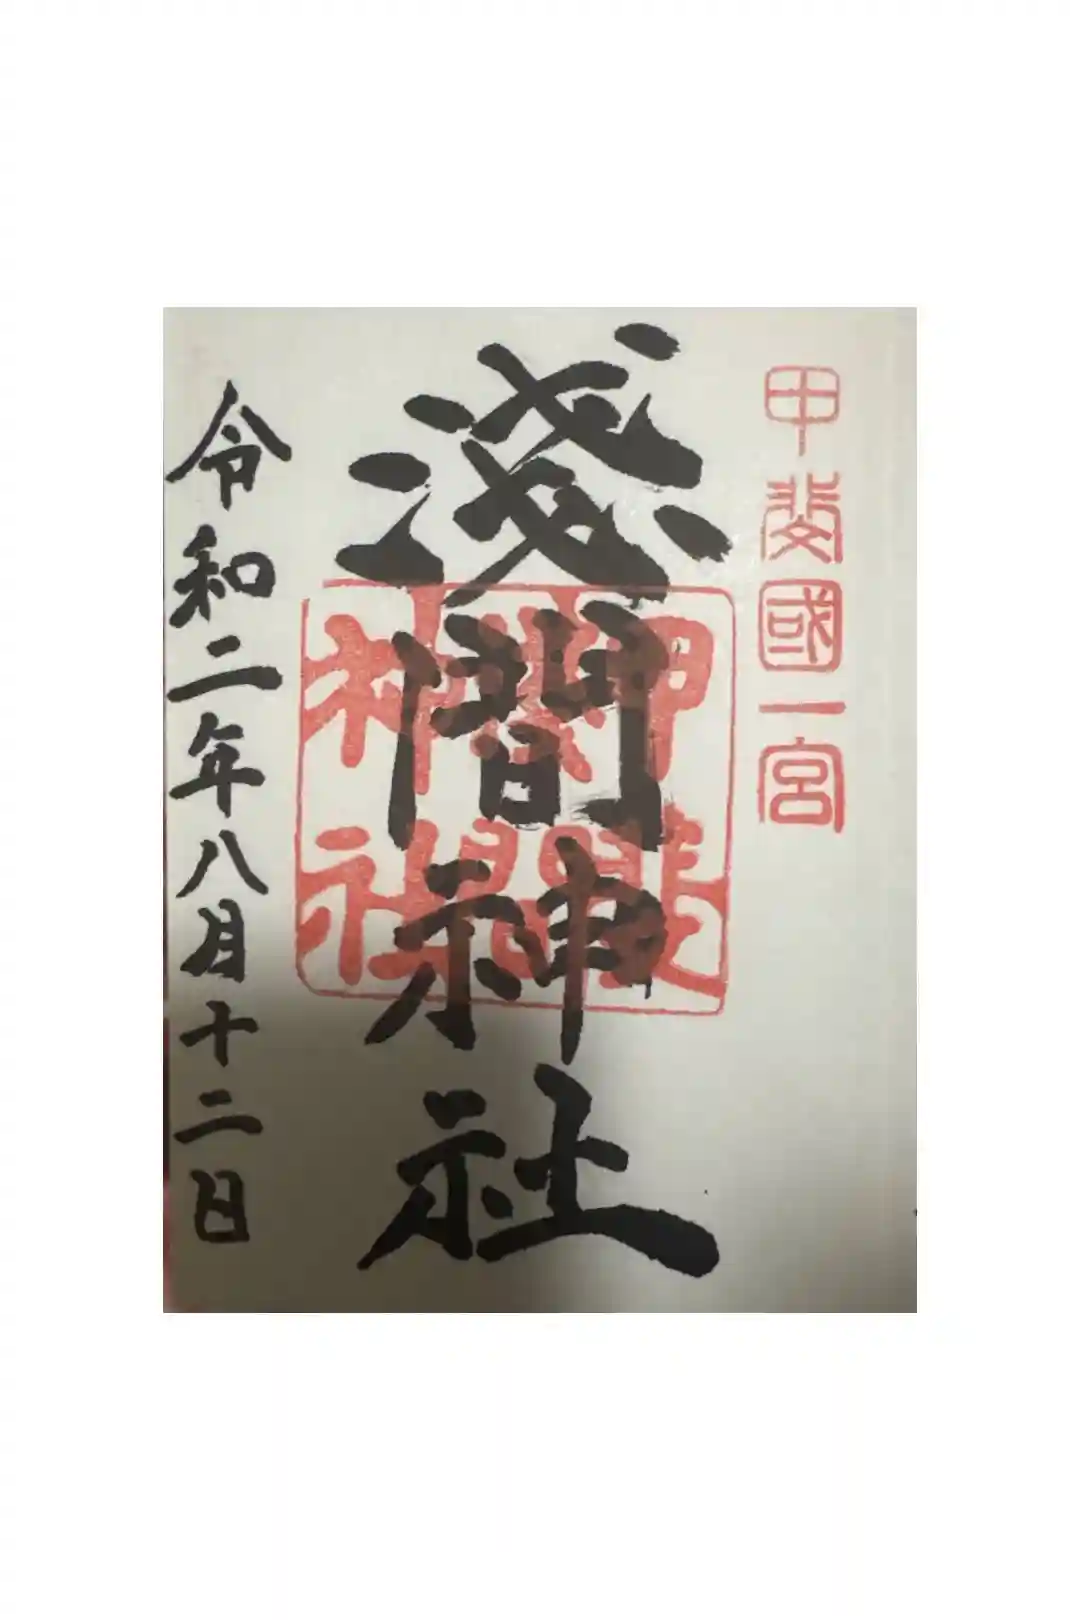 甲斐國一宮
淺間神社
令和二年八月十二日